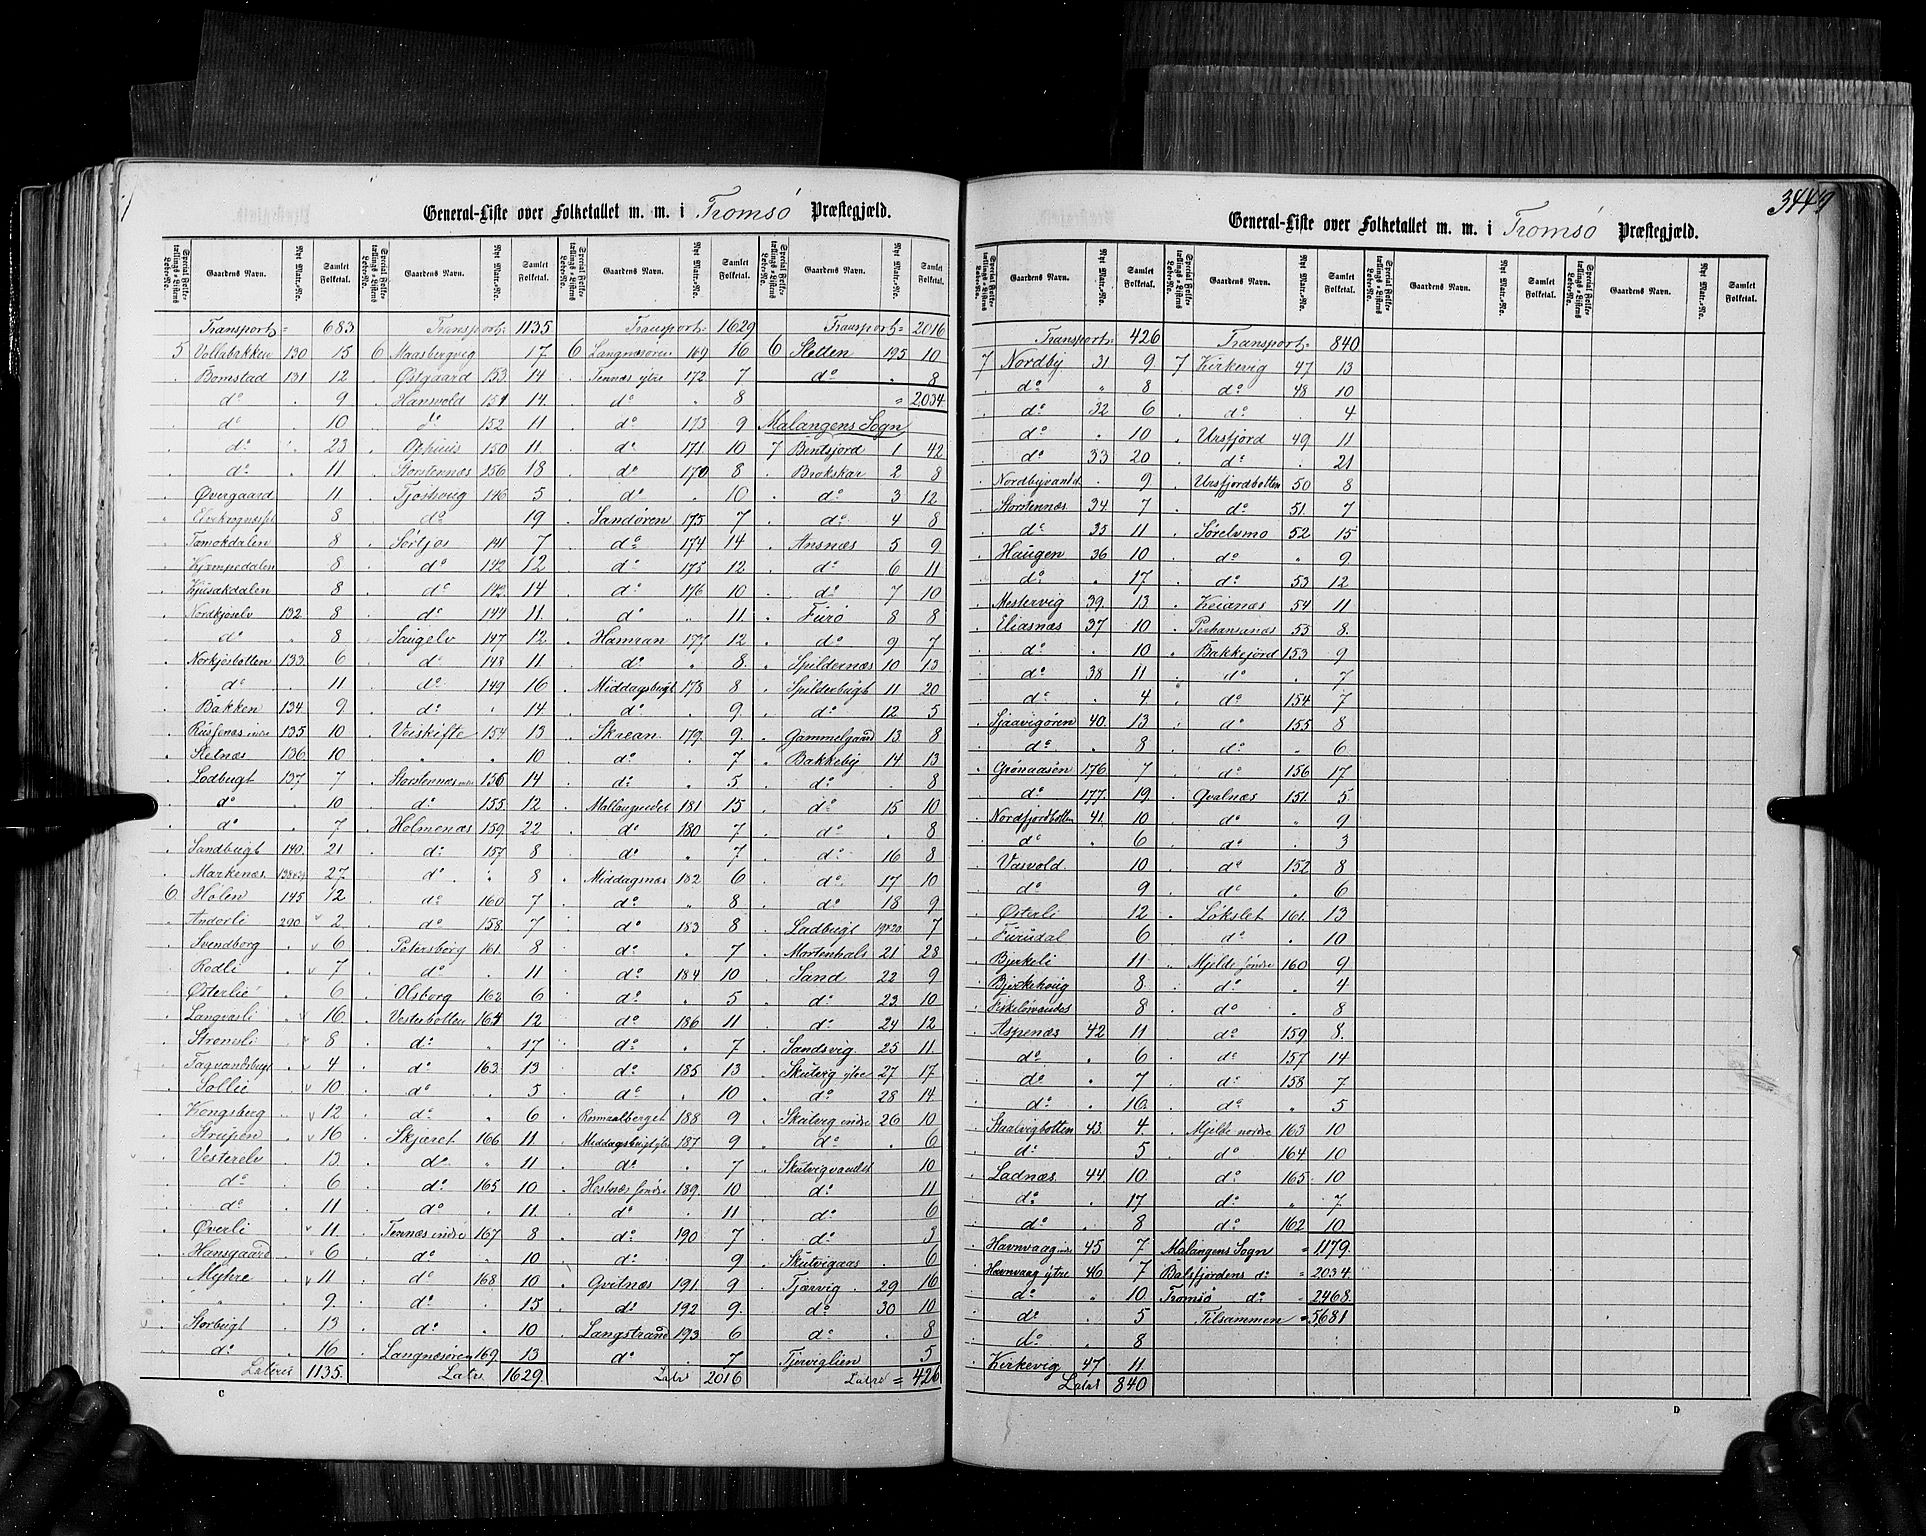 General-Liste over Folketallet m. m. i Tromsö Præstegjæld.
Special Folketællings-Listens Løbe-No. Gaardens Navn. Nyt Matr.-No. Samlet Folketal.
Transport 683
5 Vollabakken 130 15
Bomstad 131 12
do 9
do 10
do 23
do 11
Øvergaard 11
8
Tamokdalen 8
8
8
Nordkjoselv 132 8
do 8
Norkjosbotten 133 6
do 11
Bakken 134 9
135 10
Sletnæs 136 10
Lodbugt 137 7
do 10
do 7
Sandbugt 140 21
Markenæs 27
6 Holen 145 12
Anderli 290 2
Svendborg 6
Rodli 7
Østerlie 6
Langvasli 16
8
Tagvandsbugt 4
Sollie 10
Kongsberg 12
Strupen 16
Vesterelv 13
do 6
do 11
Øverli 11
Hansgaard 6
Myhre 11
" 9
Storbugt 13
do 16
Lateris 1135
Transport 1135
6 Maasbergvig 17
Østgaard 153 14
Hamvold 151 14
do 152 11
150 11
Storstennæs 156 18
146 5
do 19
141 7
do 142 12
do 14
do 144 11
Saugelv 147 12
do 148 11
do 149 16
do 14
Veiskifte 154 13
" 10
Storstennæs 14
do 155 12
Holmenæs 159 22
do 157 8
do 8
do 160 7
do 158 7
Petersborg 161 8
do 11
Olsborg 162 6
Vesterbotten 164 12
do 17
do 163 13
do 5
do 6
Skjæret 166 11
do 11
do 165 10
do 11
Tennæs indre 167 8
do 10
do 168 10
do 15
do 10
Langnæsøren 169 13
Latus 1629
Transport 1629
6 Langnæsøren 169 16
Tennæs ytre 172 7
do 8
do 173 9
do 171 10
do 170 8
do 10
Sandøren 175 7
do 174 14
do 175 12
do 176 10
do 11
Hamran 177 12
do 8
Middagsbugt 178 8
do 9
179 9
do 7
do 5
181 15
do 180 7
do 7
Middagsnæs 182 6
do 8
do 183 8
do 7
do 184 10
do 5
do 186 11
do 7
do 185 13
do 10
188 9
Middagsbugt ytre 187 9
do 7
Hestnæs søndre 189 10
do 11
do 190 7
do 9
Qvitnæs 191 9
do 192 9
Langstrand 193 6
do 7
Latus 2016
Transport 2016
6 Sletten 195 10
do 8
2034
Malangens Sogn
7 Bentsjord 1 42
Brokskar 2 8
do 3 12
do 4 8
Ansnæs 5 9
do 6 11
do 7 10
Furö 8 8
do 9 7
Spildernæs 10 13
Spilderbugt 11 20
do 12 5
Gammelgaard 13 8
Bakkeby 14 13
do 8
do 15 10
do 8
do 16 8
do 17 10
do 18 9
Ladbugt 7
Mortenhals 21 28
Sand 22 9
do 23 10
do 24 12
Sandsvig 25 11
Skutvig ytre 27 17
do 28 14
Skutvig indre 26 10
do 6
Skutvigvandet 10
do 11
do 6
do 3
Skutvigaas 6
Tjærvig 29 16
do 30 10
do 8
Tjerviglien 5
Latus 426
3449
General-Liste over Folketallet m. m. i Tromsö Præstegjæld.
Special Folketællings-Listens Løbe-No. Gaardens Navn. Nyt Matr.-No. Samlet Folketal.
Transport 426
7 Nordby 31 9
do " 8
do 32 6
do " 10
do 33 20
Nordbyvand 9
Storstennæs 34 7
do 35 11
Haugen 36 10
do " 17
Mestervig 39 13
Eliasnæs 37 10
do 10
do 38 11
do 4
40 13
do 8
Grönaasen 176 7
do 177 19
Nordfjordbotten 41 10
do 6
Vasvold 10
do 9
Østerli 12
Furudal 6
Bjerkeli 11
Bjerkehoug 8
8
Aspenæs 42 11
do 6
do 7
do 16
Staalvigbotten 43 4
do 5
Ladnæs 44 10
do 17
do 8
Havnvaag indre 45 7
Havnvaag ytre 46 7
do 10
do 5
do 8
Kirkevig 47 11
Latus 840
Transport 840
7 Kirkevig 47 13
do 48 10
do 4
Ursfjord 49 11
do 21
Ursfjordbotten 50 8
do 51 7
Sørelvmo 52 15
do 9
do 53 12
54 11
55 8
Bakkejord 153 9
do 7
do 154 7
do 155 8
do 6
do 156 17
Qvalnæs 151 5
do 9
do 3
do 152 8
do 6
Løkslet 161 13
do 10
Mjelde søndre 160 9
do 4
do 8
do 159 8
do 157 14
do 158 7
do 5
Mjelde nordre 163 10
do 164 10
do 165 10
do 7
do 162 10
Malangens Sogn = 1179
Balsfjordens do = 2034
Tromsö do = 2468
Tilsammen = 5681
C
D